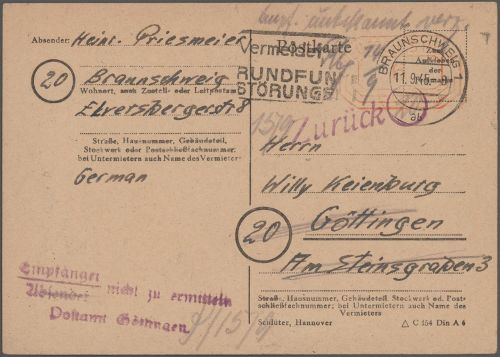 Empf. unbekannt verz.
Absender: Heinr. Priesmeier
20
Braunschweig
Wohnort, auch Zustell- oder Leitpostamt
Ebertsbergerstr 8
Straße, Hausnummer, Gebäudeteil,
Stockwerk oder Postschließfachnummer;
bei Untermietern auch Name des Vermieters
German
Empfänger
Absender nicht zu ermitteln
Postamt Göttingen
15/9
Postkarte
Vermeidet
RUNDFUN
STÖRUNG
BRAUNSCHWEIG 1
11.9.45.
15/9
Zurück
Herrn
Willy Keienburg
20
Göttingen
Am Steinsgraben 3
Straße, Hausnummer, Gebäudeteil, Stockwerk od. Post-
schließfachnummer; bei Untermietern auch Name des
Vermieters
Schlüter, Hannover
C 154 Din A 6